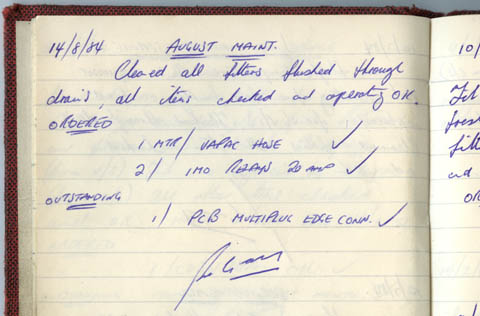 14/8/84 AUGUST MAINT.
Cleaned all filters flushed through
drains, all items checked and operating OK.
ORDERED
1 MTR/ VAPAC HOSE ✓
2/ IMO 20 AMP ✓
OUTSTANDING
1/ PCB MULTIPLUG EDGE CONN. ✓
10/